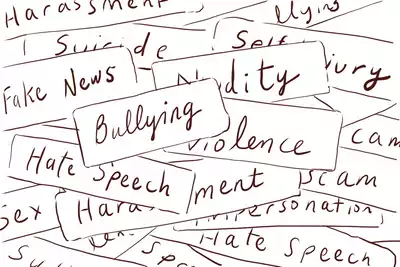 Harassment
llying
Suicide
Self
jury
Fake News
Nudity
Bullying
Violence
cam
Hate Speech
Harassment
Scam
Sex
Impersonation
Hate Speech